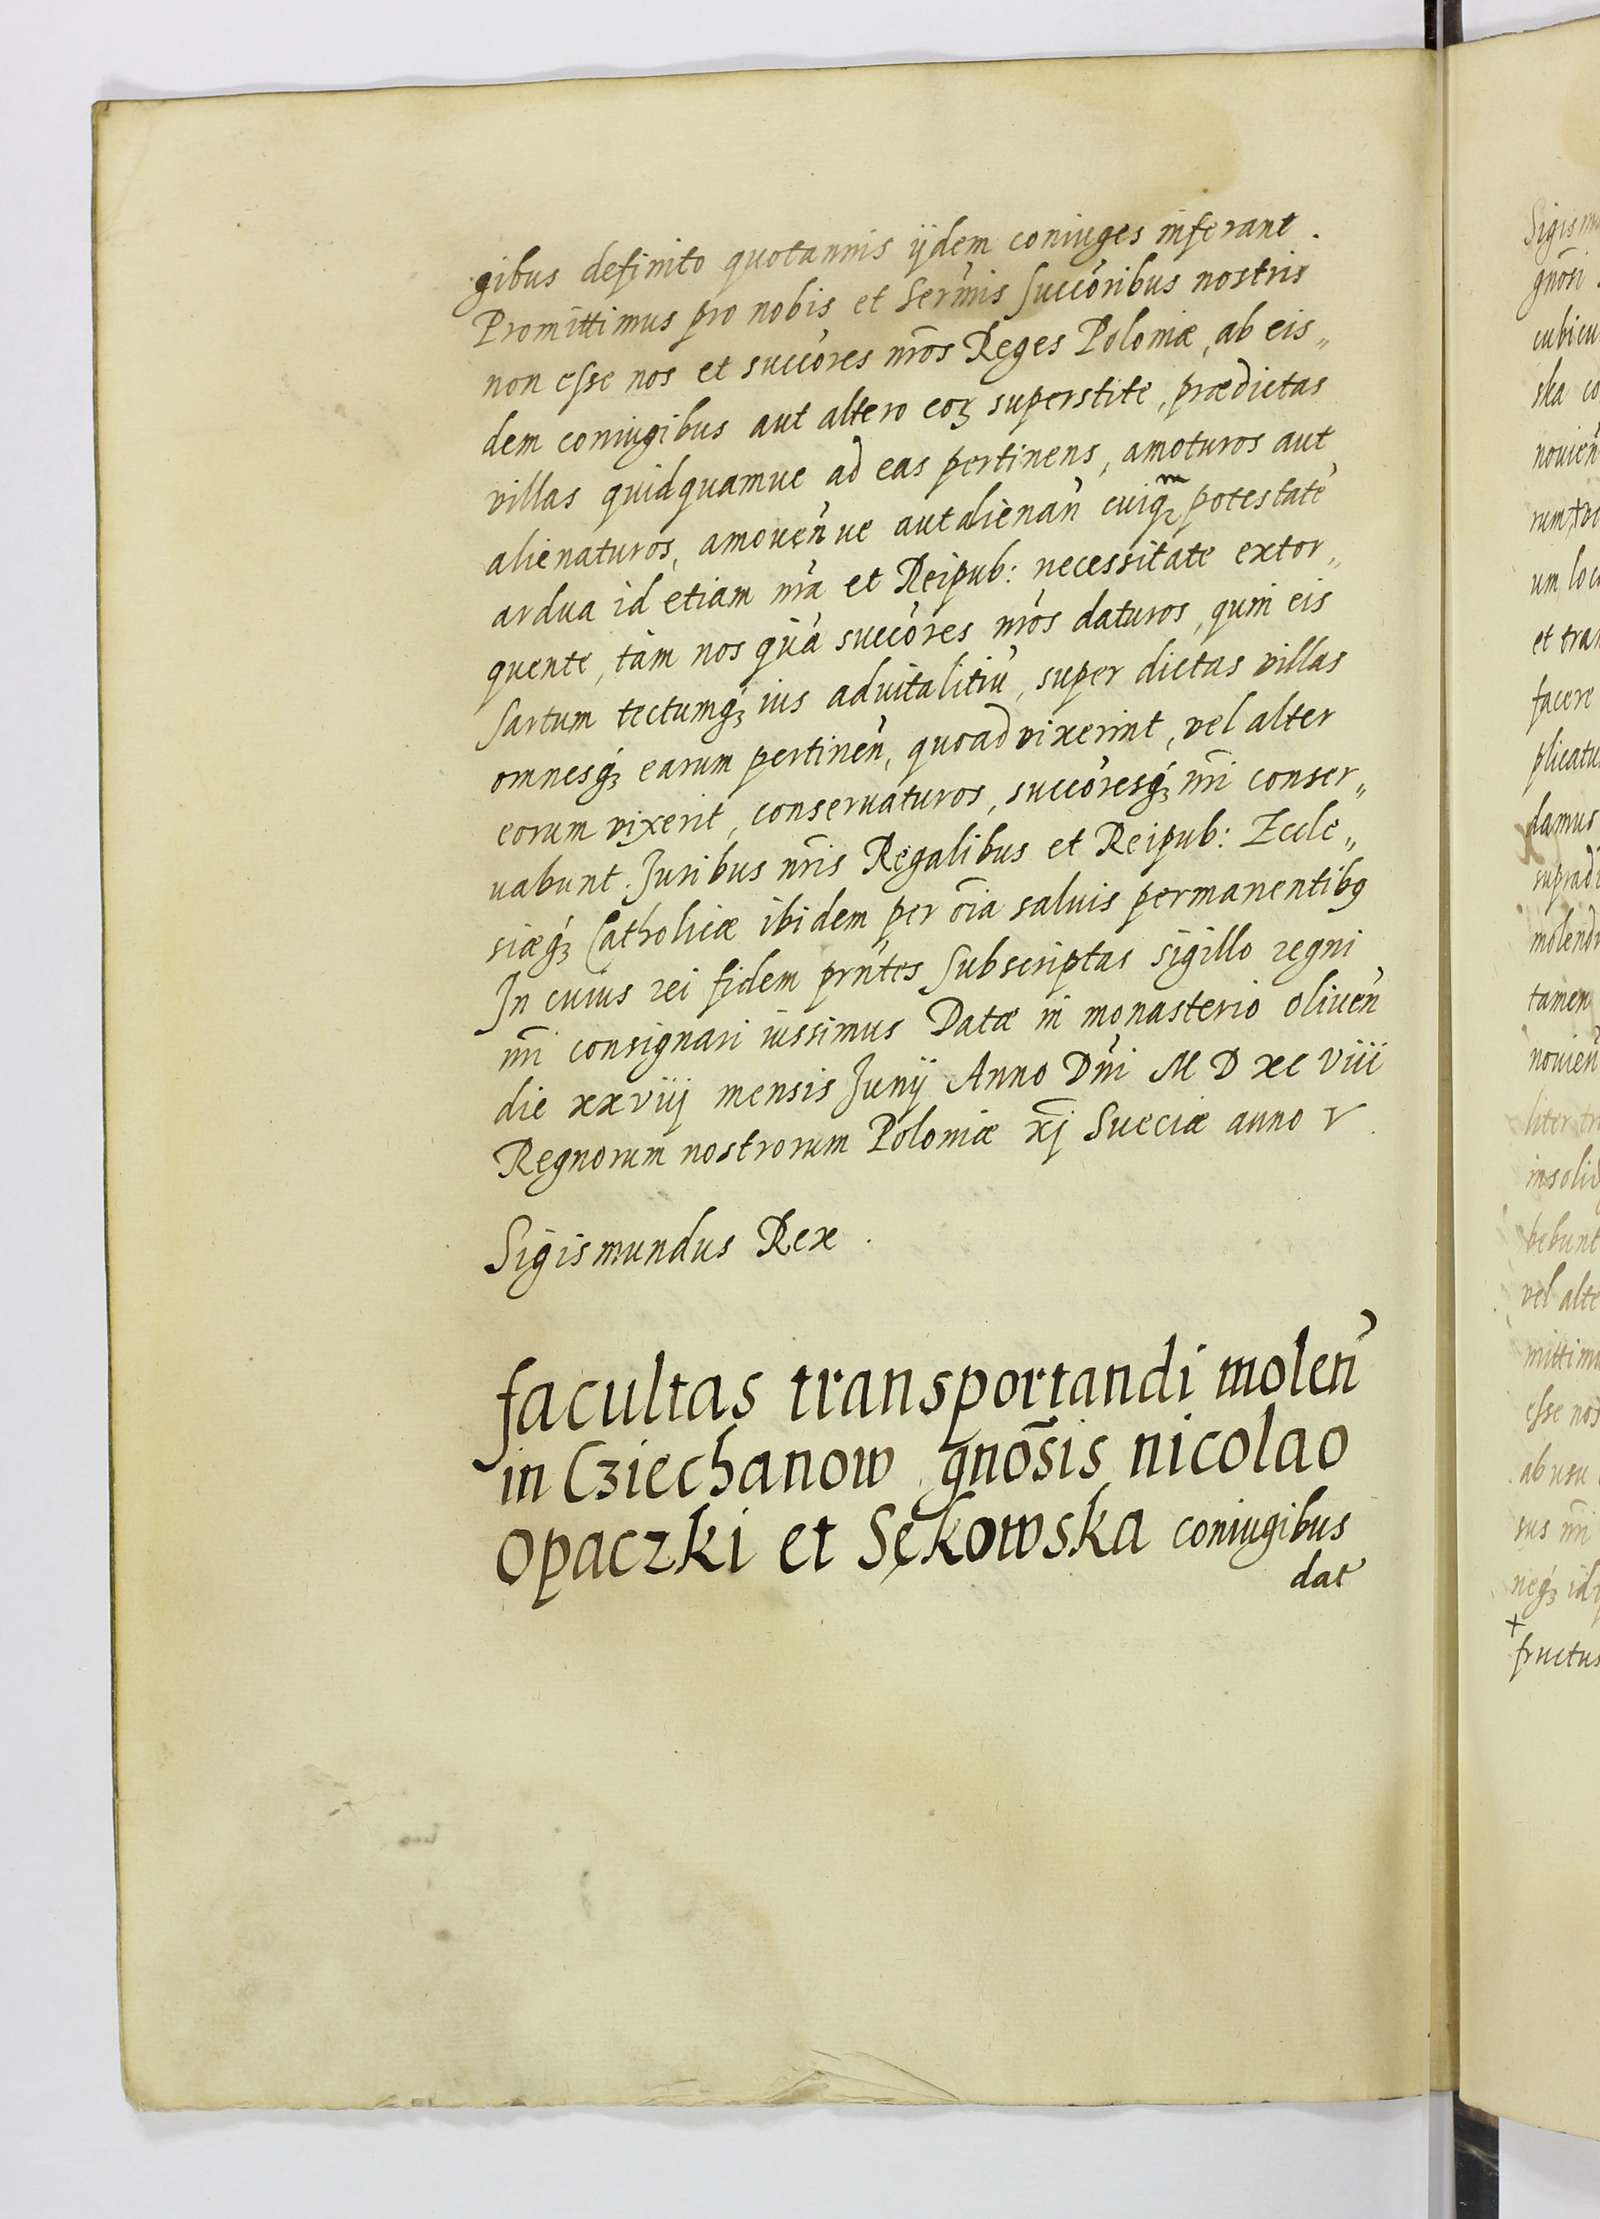 gibus definito quotannis ijdem coniuges inferant.
Promittimus pro nobis et Sermis succoribus nostris
non esse nos et succores nros Reges Poloniæ, ab eis„
dem coniugibus aut altero eoꝝ superstite, prædictas
villas quidquamue ad eas pertinens, amoturos aut
alienaturos, amouen̄ue aut alienan̄ cuiqꝫm potestatē
ardua id etiam nr̄a et Reipub: necessitate extor„
quente, tam nos quā succores nr̄os daturos, quin eis
sartum tectumqꝫ ius aduitalitiū, super dictas villas
omnesqꝫ earum pertinen̄, quoad vixerint, vel alter
eorum vixerit, conseruaturos, succoresqꝫ nr̄i conser„
uabunt. Juribus nr̄is Regalibus et Reipub: Eccle„
siæqꝫ Catholicæ ibidem per oīa saluis permanentibꝰ
In cuius rei fidem prn̄tes subscriptas sigillo regni
nr̄i consignari iussimus Datæ in monasterio oliuen̄
die xxviij mensis Junij Anno Dn̄i M D xc viii
Regnorum nostrorum Poloniæ xj Sueciæ anno v
Sigismundus Rex.
facultas transportandi molen̄
in Cziechanow gnōsis nicolao
Opaczki et Sękowska coniugibus
dat
Sigism
gnōsi
cubicu
ska co
nouien̄
um loc
et tra
facere
plicatu
damus
supradi
molend
tamen
nouien̄
liter tr
insolid
bebunt
vel alte
mittimu
esse nos
ab usu
sus nr̄i
neqꝫ id
+
fructus